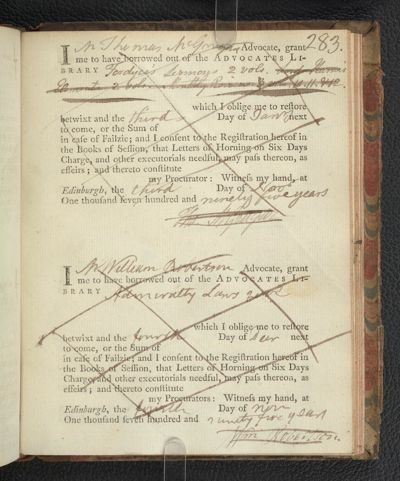 283.
I Mr Thomas Advocate, grant
me to have borrowed out of the ADVOCATES LI-
BRARY Fordyces Sermons 2 vols.
2 vols
which I oblige me to reſtore
betwixt and the third Day of Janry next
to come, or the Sum of
in caſe of Failzie; and I conſent to the Regiſtration hereof in
the Books of Seſſion, that Letters of Horning on Six Days
Charge, and other executorials needful, may paſs thereon, as
effeirs; and thereto conſtitute
my Procurator: Witneſs my hand, at
Edinburgh, the third Day of Nov
One thouſand ſeven hundred and ninety five years
I Mr William Robertson Advocate, grant
me to have borrowed out of the ADVOCATES LI-
BRARY Admiralty Laws 2 vol
which I oblige me to reſtore
betwixt and the fourth Day of next
to come, or the Sum of
in caſe of Failzie; and I conſent to the Regiſtration hereof in
the Books of Seſſion, that Letters of Horning on Six Days
Charge, and other executorials needful, may paſs thereon, as
effeirs; and thereto conſtitute
my Procurators: Witneſs my hand, at
Edinburgh, the fourth Day of Novr
One thouſand ſeven hundred and ninety five years
Wm Robertson.